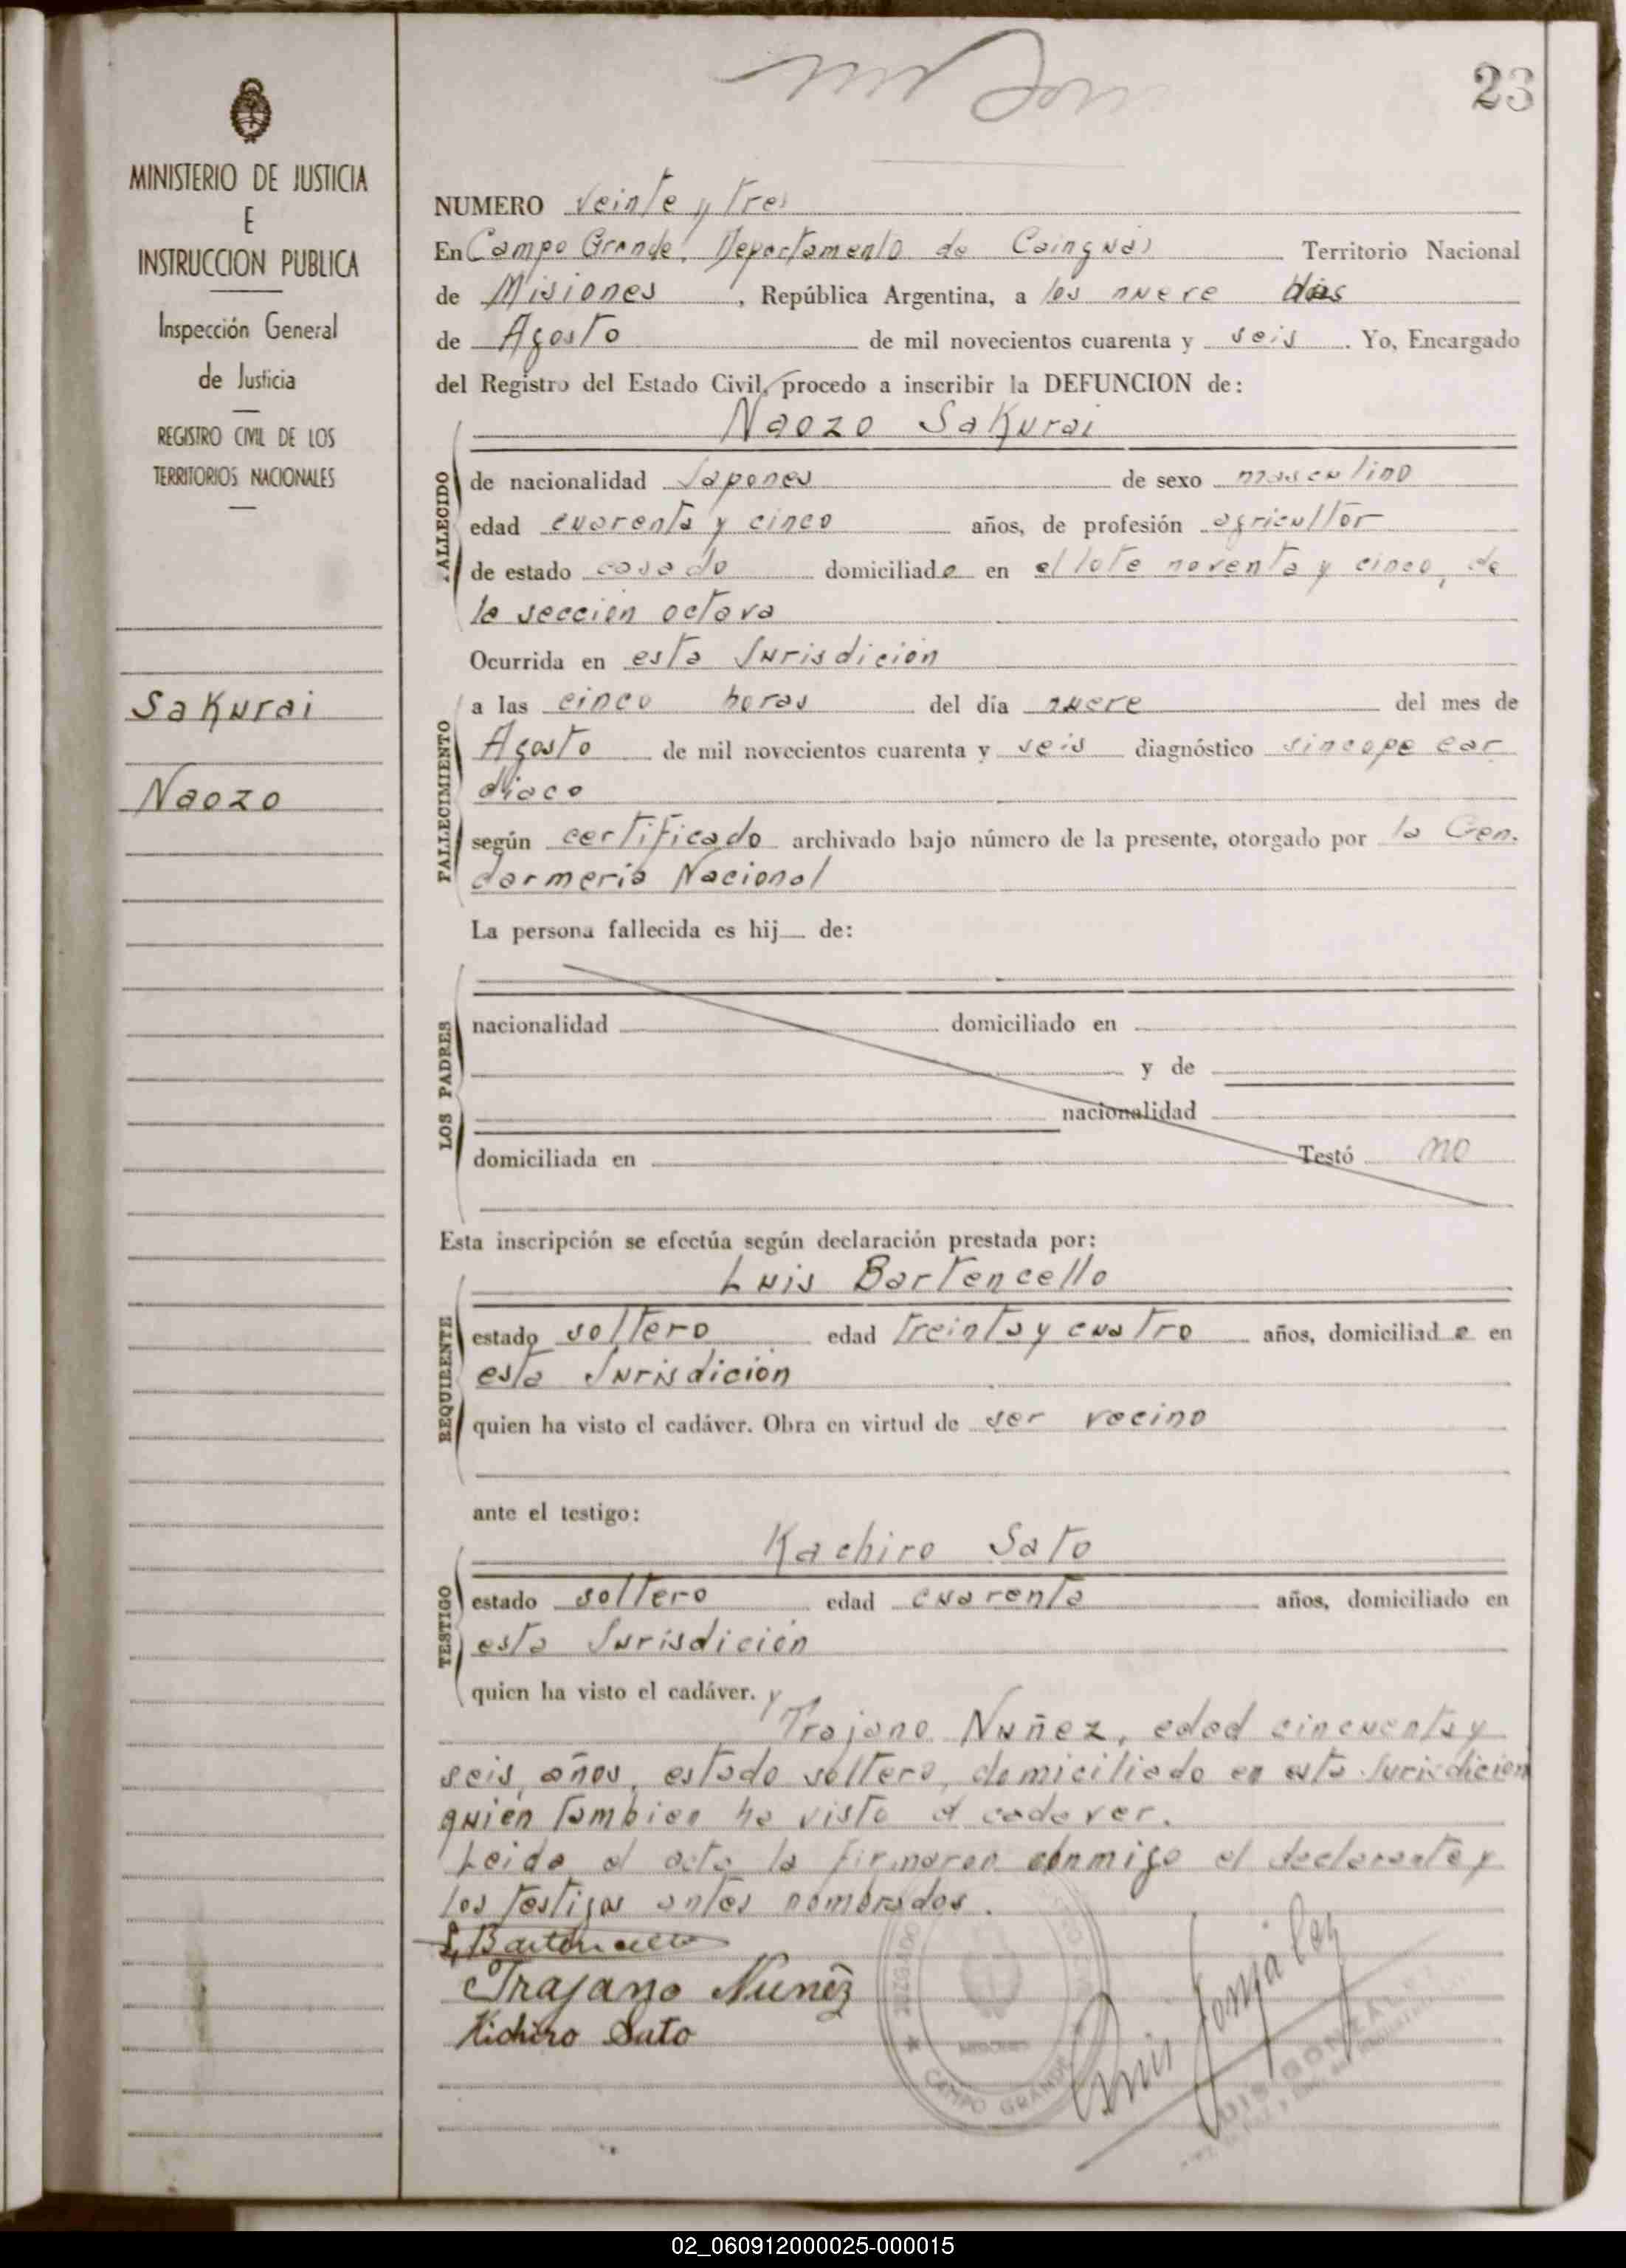 23
MINISTERIO DE JUSTICIA
E
INSTRUCCION PUBLICA
Inspección General
de Justicia
REGISTRO CIVIL DE LOS
TERRITORIOS NACIONALES
Sakurai
Naozo
NUMERO veinte y tres
En Campo Grande, Departamento de Cainguás Territorio Nacional
de Misiones, República Argentina, a los nueve días
de Agosto de mil novecientos cuarenta y seis. Yo, Encargado
del Registro del Estado Civil, procedo a inscribir la DEFUNCION de:
Naozo Sakurai
FALLECIDO
de nacionalidad Japones de sexo masculino
edad cuarenta y cinco años, de profesión agricultor
de estado casado domiciliado en el lote noventa y cinco, de
la sección octava
Ocurrida en esta Jurisdición
FALLECIMIENTO
a las cinco horas del día nueve del mes de
Agosto de mil novecientos cuarenta y seis diagnóstico sincope car
diaco
según certificado archivado bajo número de la presente, otorgado por la Gen.
darmeria Nacional
La persona fallecida es hij de:
LOS PADRES
nacionalidad domiciliado en
y de
nacionalidad
domiciliada en Testó no
Esta inscripción se efectúa según declaración prestada por:
Luis Bartencello
REQUIRENTE
estado soltero edad treinta y cuatro años, domiciliado en
esta Jurisdición
quien ha visto el cadáver. Obra en virtud de ser vecino
ante el testigo:
Kachiro Sato
TESTIGO
estado soltero edad cuarenta años, domiciliado en
esta Jurisdición
quien ha visto el cadáver. y
Trajano Nuñez, edad cincuenta y
seis años, estado soltero, domiciliado en esta Jurisdicion
quién tambien ha visto el cadaver.
Leida el acta la firmaron conmigo el declarante y
los testigos antes nombrados.
L. Bartencello
Trajano Nuñez
Kichiro Sato
JUZGADO
CAMPO GRANDE
Luis Gonzalez
LUIS GONZALEZ
02_060912000025-000015